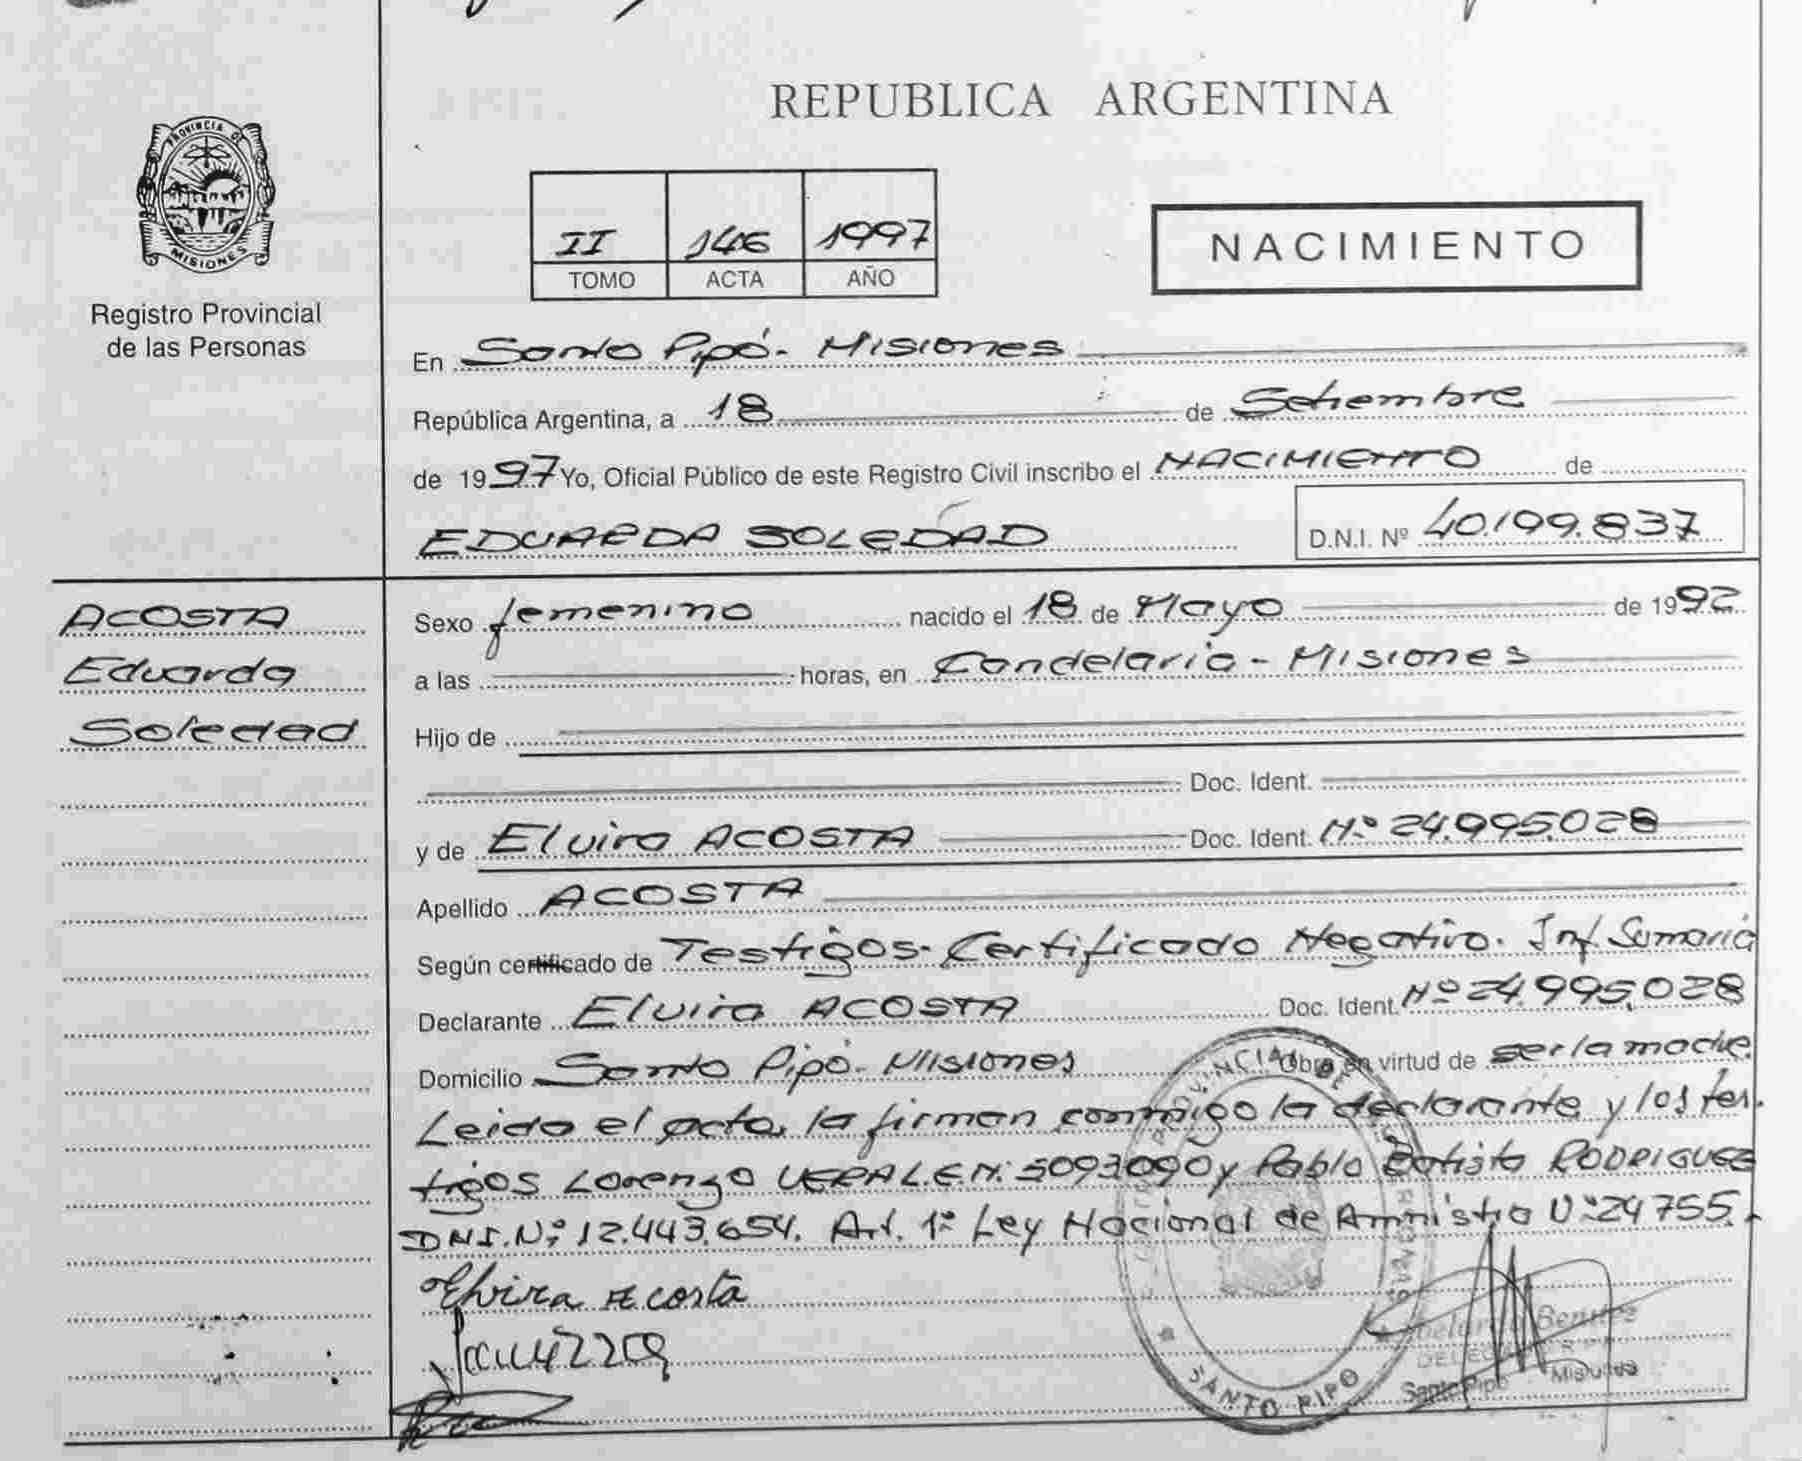 REPUBLICA ARGENTINA
PROVINCIA DE
MISIONES
Registro Provincial
de las Personas
II 146 1997
TOMO ACTA AÑO
NACIMIENTO
En Santo Pipó - Misiones
República Argentina, a 18 de Setiembre
de 1997 Yo, Oficial Público de este Registro Civil inscribo el NACIMIENTO de
EDUARDA SOLEDAD D.N.I. Nº 40.199.837
ACOSTA
Eduarda
Soledad
Sexo femenino nacido el 18 de Mayo de 1992
a las horas, en Candelaria - Misiones
Hijo de
Doc. Ident.
y de Elvira ACOSTA Doc. Ident. Nº 24.995.028
Apellido ACOSTA
Según certificado de Testigos - Certificado Negativo. Inf. Sumaria
Declarante Elvira ACOSTA Doc. Ident. Nº 24.995.028
Domicilio Santo Pipó - Misiones Obra en virtud de ser la madre.
Leida el acta, la firman conmigo la declarante y los tes-
tigos Lorenzo VERA L.E.N: 5093090 y Pablo Batista RODRIGUEZ
DNI. Nº 12.443.654. Art. 1º Ley Nacional de Amnistia Nº 24755.
Elvira Acosta
Benitez
Santo Pipó Misiones
SANTO PIPO